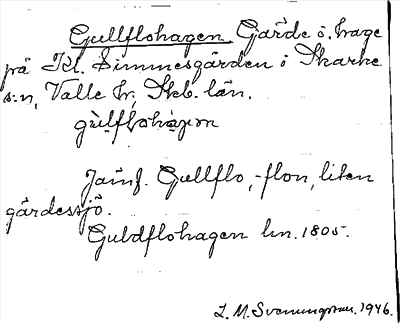 Gullflohagen. Gärde o. hage
på Kl. Simmesgården i Skarke
s:n, Valle hr, Skb. län.
gu̇lflohaɡɷn
Jämf. Gullflo, -flon, liten
gärdessjö.
Guldflohagen lm. 1805.
L. M. Svenungsson. 1946.